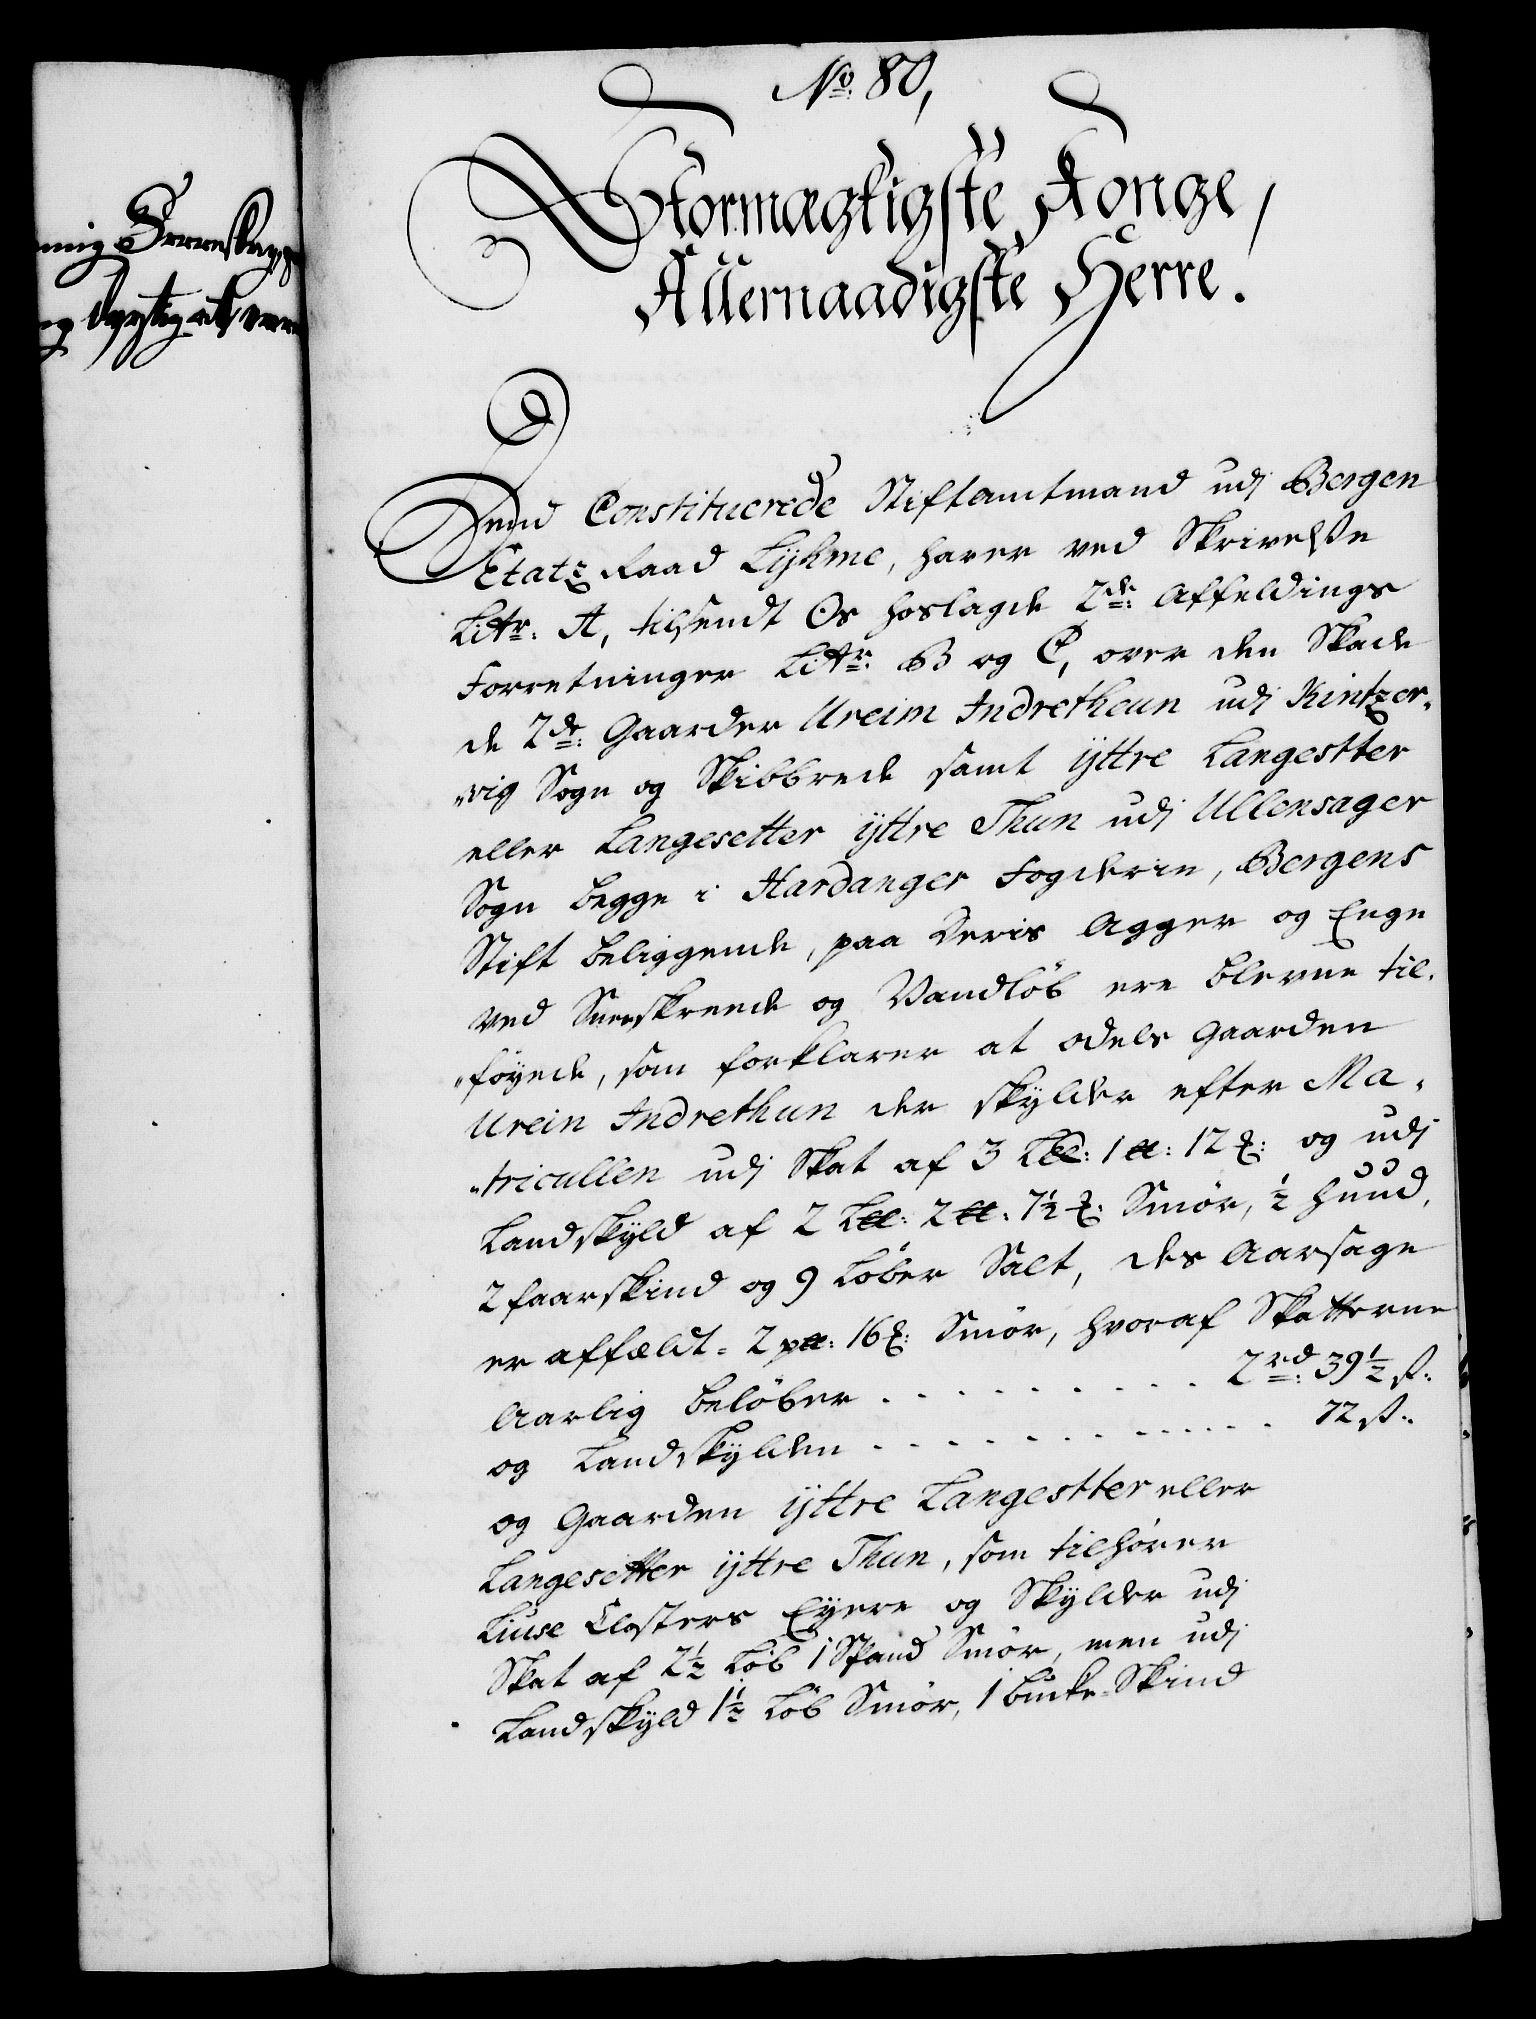 No: 80,
Stormægtigste Konge,
Allernaadigste Herre.
Dend Constituerede Stiftamtmand udj Bergen
Etatz Raad Lyhme, haver ved Skrivelse
Littr: A, tilsendt Os hoslagde 2de: Affældings
Forretninger Littr: B og C, over den Skade
de 2de: Gaarder Ureim Indrethun udj Kintzer-
"vig Sogn og Skibbrede samt ÿttre Langestter
eller Langesetter ÿttre Thun udj Ullensager
Sogn begge i Hardanger Fogderie, Bergens
Stift beliggende, paa deris Agger og Enge
ved Sneeskreede og Vandløb ere blevne til-
"føyede, som forklarer at odels Gaarden
Urein Indrethun der skylder efter Ma-
"tricullen udj Skat af 3 L℔: 1 ℔: 12 ℥: og udj
Landskyld af 2 L℔: 2 ℔: 7½ ℥: Smør, ½ huud,
2 faarskind og 9 Løber Salt, des Aarsage
er affældt = 2 p℔: 16 ℥: Smør, hvoraf Skatterne
Aarlig beløber . . . . . . . . . 2 rd: 39½ ß:
og Landskylden . . . . . . . . . . . . 72 ß:
og Gaarden ÿttre Langestter eller
Langesetter ÿttre Thun, som tilhører
Liuse Closters Eyere og Skylder udj
Skat af 2½ Løb 1 Spand Smør, men udj
Landskyld 1½ Løb Smør, 1 bucke-Skind